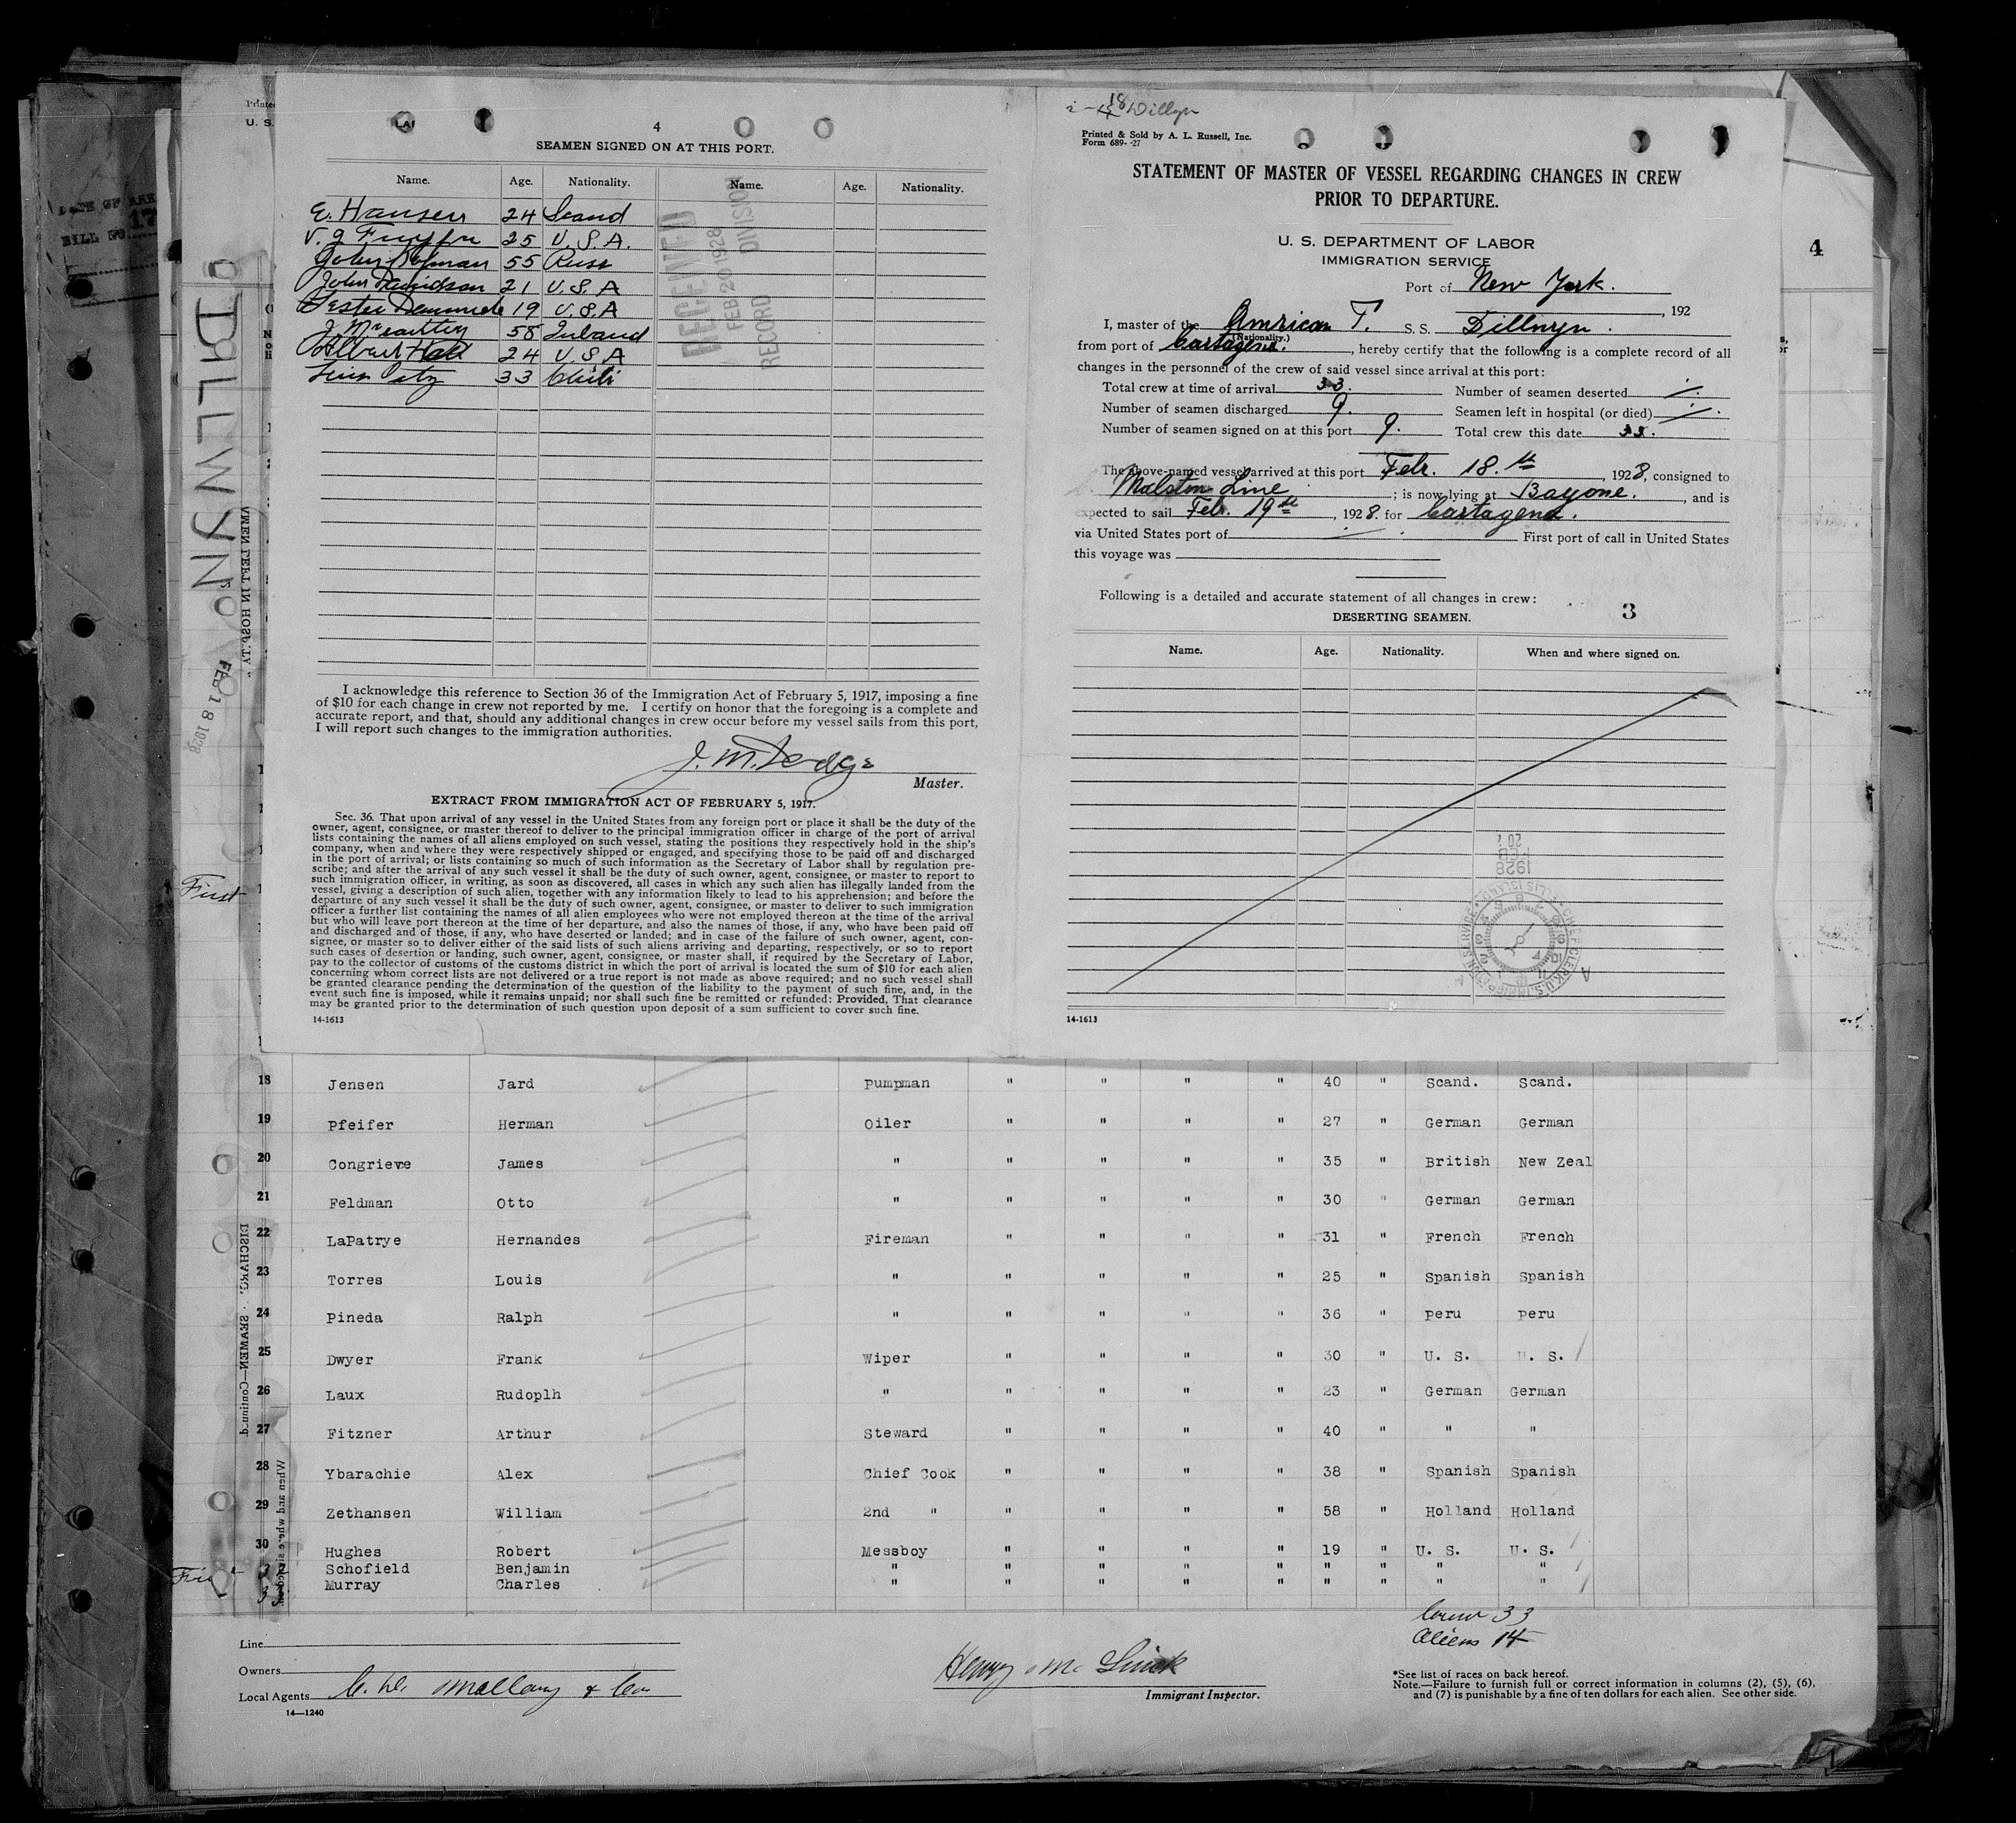 4
SEAMEN SIGNED ON AT THIS PORT.
Name. Age. Nationality. Name. Age. Nationality.
E. Hansen 24 Scand
V. J 25 U.S.A.
John 55 Russ
John Davidson 21 U.S.A
Lester 19 U.S.A
J. McCarthy 58
Albert Hall 24 U.S.A
33 Chili
RECEIVED
FEB 20 1928
RECORD DIVISION
I acknowledge this reference to Section 36 of the Immigration Act of February 5, 1917, imposing a fine
of $10 for each change in crew not reported by me. I certify on honor that the foregoing is a complete and
accurate report, and that, should any additional changes in crew occur before my vessel sails from this port,
I will report such changes to the immigration authorities.
Master.
EXTRACT FROM IMMIGRATION ACT OF FEBRUARY 5, 1917.
Sec. 36. That upon arrival of any vessel in the United States from any foreign port or place it shall be the duty of the
owner, agent, consignee, or master thereof to deliver to the principal immigration officer in charge of the port of arrival
lists containing the names of all aliens employed on such vessel, stating the positions they respectively hold in the ship's
company, when and where they were respectively shipped or engaged, and specifying those to be paid off and discharged
in the port of arrival; or lists containing so much of such information as the Secretary of Labor shall by regulation pre-
scribe; and after the arrival of any such vessel it shall be the duty of such owner, agent, consignee, or master to report to
such immigration officer, in writing, as soon as discovered, all cases in which any such alien has illegally landed from the
vessel, giving a description of such alien, together with any information likely to lead to his apprehension; and before the
departure of any such vessel it shall be the duty of such owner, agent, consignee, or master to deliver to such immigration
officer a further list containing the names of all alien employees who were not employed thereon at the time of the arrival
but who will leave port thereon at the time of her departure, and also the names of those, if any, who have been paid off
and discharged and of those, if any, who have deserted or landed; and in case of the failure of such owner, agent, con-
signee, or master so to deliver either of the said lists of such aliens arriving and departing, respectively, or so to report
such cases of desertion or landing, such owner, agent, consignee, or master shall, if required by the Secretary of Labor,
pay to the collector of customs of the customs district in which the port of arrival is located the sum of $10 for each alien
concerning whom correct lists are not delivered or a true report is not made as above required; and no such vessel shall
be granted clearance pending the determination of the question of the liability to the payment of such fine, and, in the
event such fine is imposed, while it remains unpaid; nor shall such fine be remitted or refunded: Provided, That clearance
may be granted prior to the determination of such question upon deposit of a sum sufficient to cover such fine.
14-1613
Printed & Sold by A. L. Russell, Inc.
Form 689- -27
STATEMENT OF MASTER OF VESSEL REGARDING CHANGES IN CREW
PRIOR TO DEPARTURE.
U. S. DEPARTMENT OF LABOR
IMMIGRATION SERVICE
Port of New York.
, 192
I, master of the American T. S. S. Dillwyn.
(Nationality.)
from port of Cartagena., hereby certify that the following is a complete record of all
changes in the personnel of the crew of said vessel since arrival at this port:
Total crew at time of arrival 33. Number of seamen deserted
Number of seamen discharged 9. Seamen left in hospital (or died)
Number of seamen signed on at this port 9. Total crew this date 33.
The above-named vessel arrived at this port Febr. 18.th, 1928, consigned to
Line; is now lying at Bayone., and is
expected to sail Feb. 19th, 1928. for Cartagena.
via United States port of First port of call in United States
this voyage was
Following is a detailed and accurate statement of all changes in crew:
3
DESERTING SEAMEN.
Name. Age. Nationality. When and where signed on.
14-1613
4
DILLWYN
FEB 18 1928
First
18 Jensen Jard Pumpman " " " " 40 " Scand. Scand.
19 Pfeifer Herman Oiler " " " " 27 " German German
20 Congrieve James " " " " " 35 " British New Zeal
21 Feldman Otto " " " " " 30 " German German
22 LaPatrye Hernandes Fireman " " " " 31 " French French
23 Torres Louis " " " " " 25 " Spanish Spanish
24 Pineda Ralph " " " " " 36 " Peru Peru
25 Dwyer Frank Wiper " " " " 30 " U. S. U. S.
26 Laux Rudoplh " " " " " 23 " German German
27 Fitzner Arthur Steward " " " " 40 " " "
28 Ybarachie Alex Chief Cook " " " " 38 " Spanish Spanish
29 Zethansen William 2nd " " " " " 58 " Holland Holland
30 Hughes Robert Messboy " " " " 19 " U. S. U. S.
Schofield Benjamin " " " " " " " " "
Murray Charles " " " " " " " " "
Crew 33
Aliens 14
Line
Owners
Local Agents C. D. Mallory & Co.
14—1240
Immigrant Inspector.
*See list of races on back hereof.
Note.—Failure to furnish full or correct information in columns (2), (5), (6),
and (7) is punishable by a fine of ten dollars for each alien. See other side.